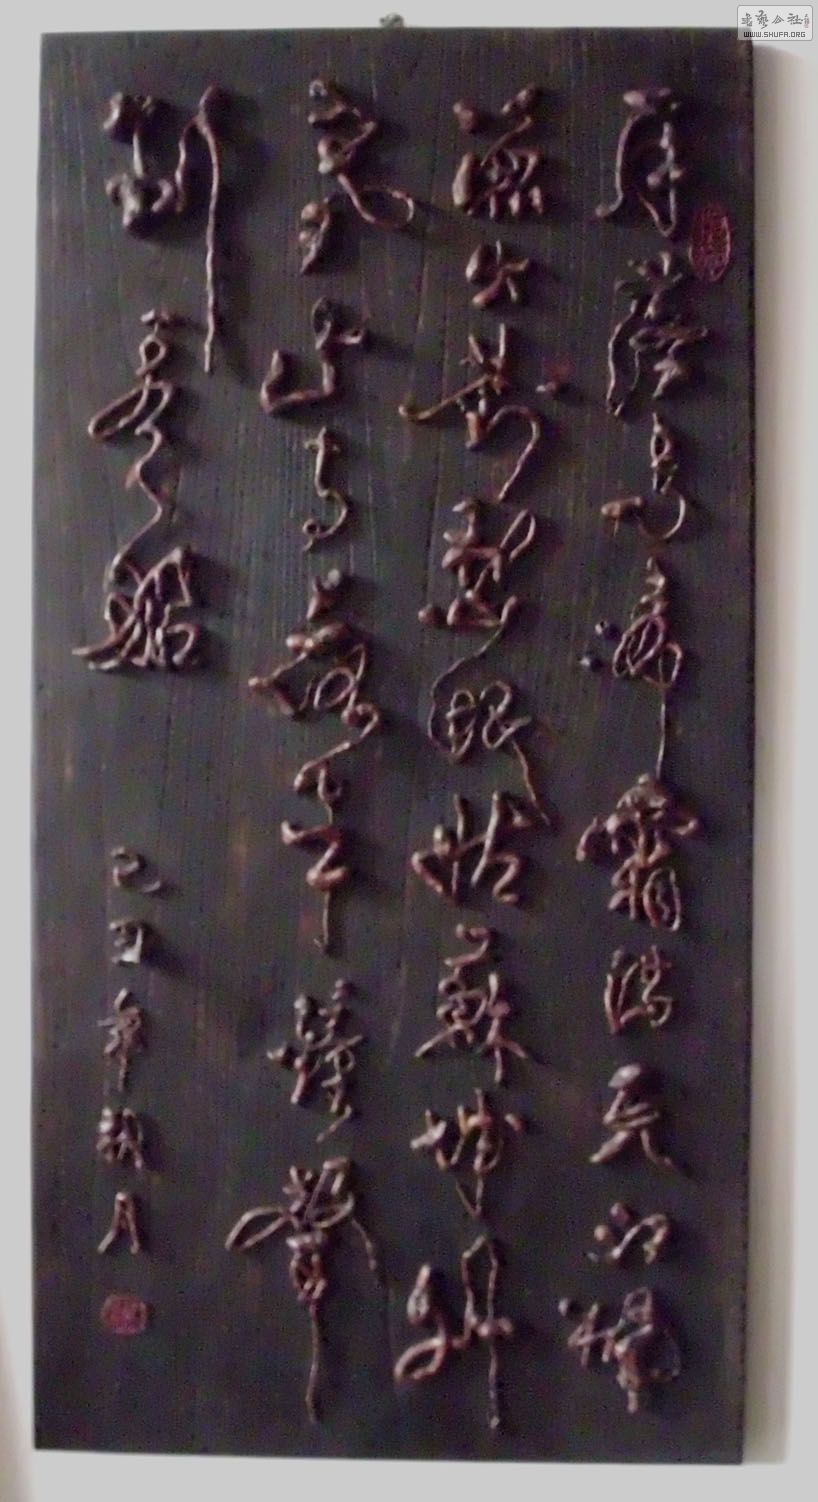 書藝公社
WWW.SHUFA.ORG
月落烏啼霜滿天江楓
漁火對愁眠姑蘇城外
寒山寺夜半鐘聲
到客船
己丑年月